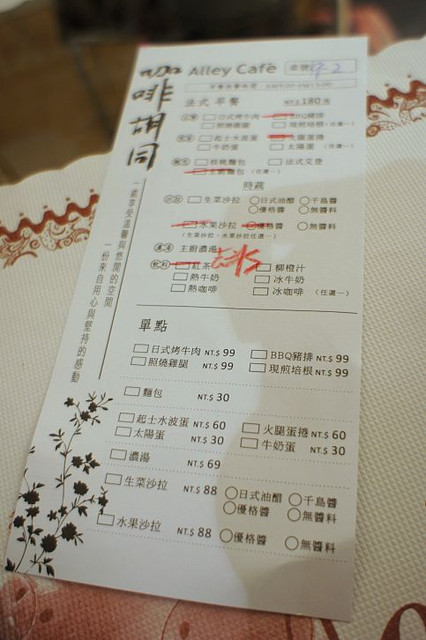 咖啡胡同
一處享受溫馨與悠閒的空間
一份來自用心與堅持的感動
Alley Cafe 桌號 7-2
法式早餐 NT.$ 180
日式烤牛肉 BBQ豬排
照燒雞腿 現煎培根 (任選一)
起士水波蛋 火腿蛋捲
牛奶蛋 太陽蛋 (任選一)
核桃麵包 法式文登
主廚麵包 (任選一)
時蔬
生菜沙拉 日式油醋 千島醬
優格醬 無醬料
水果沙拉 優格醬 無醬料
(生菜沙拉、水果沙拉任選一)
濃湯 主廚濃湯
飲料 紅茶 去冰 柳橙汁
熱牛奶 冰牛奶
熱咖啡 冰咖啡 (任選一)
單點
日式烤牛肉 NT.$ 99 BBQ豬排 NT.$ 99
照燒雞腿 NT.$ 99 現煎培根 NT.$ 99
麵包 NT.$ 30
起士水波蛋 NT.$ 60 火腿蛋捲 NT.$ 60
太陽蛋 NT.$ 30 牛奶蛋 NT.$ 30
濃湯 NT.$ 69
生菜沙拉 NT.$ 88 日式油醋 千島醬
優格醬 無醬料
水果沙拉 NT.$ 88 優格醬 無醬料